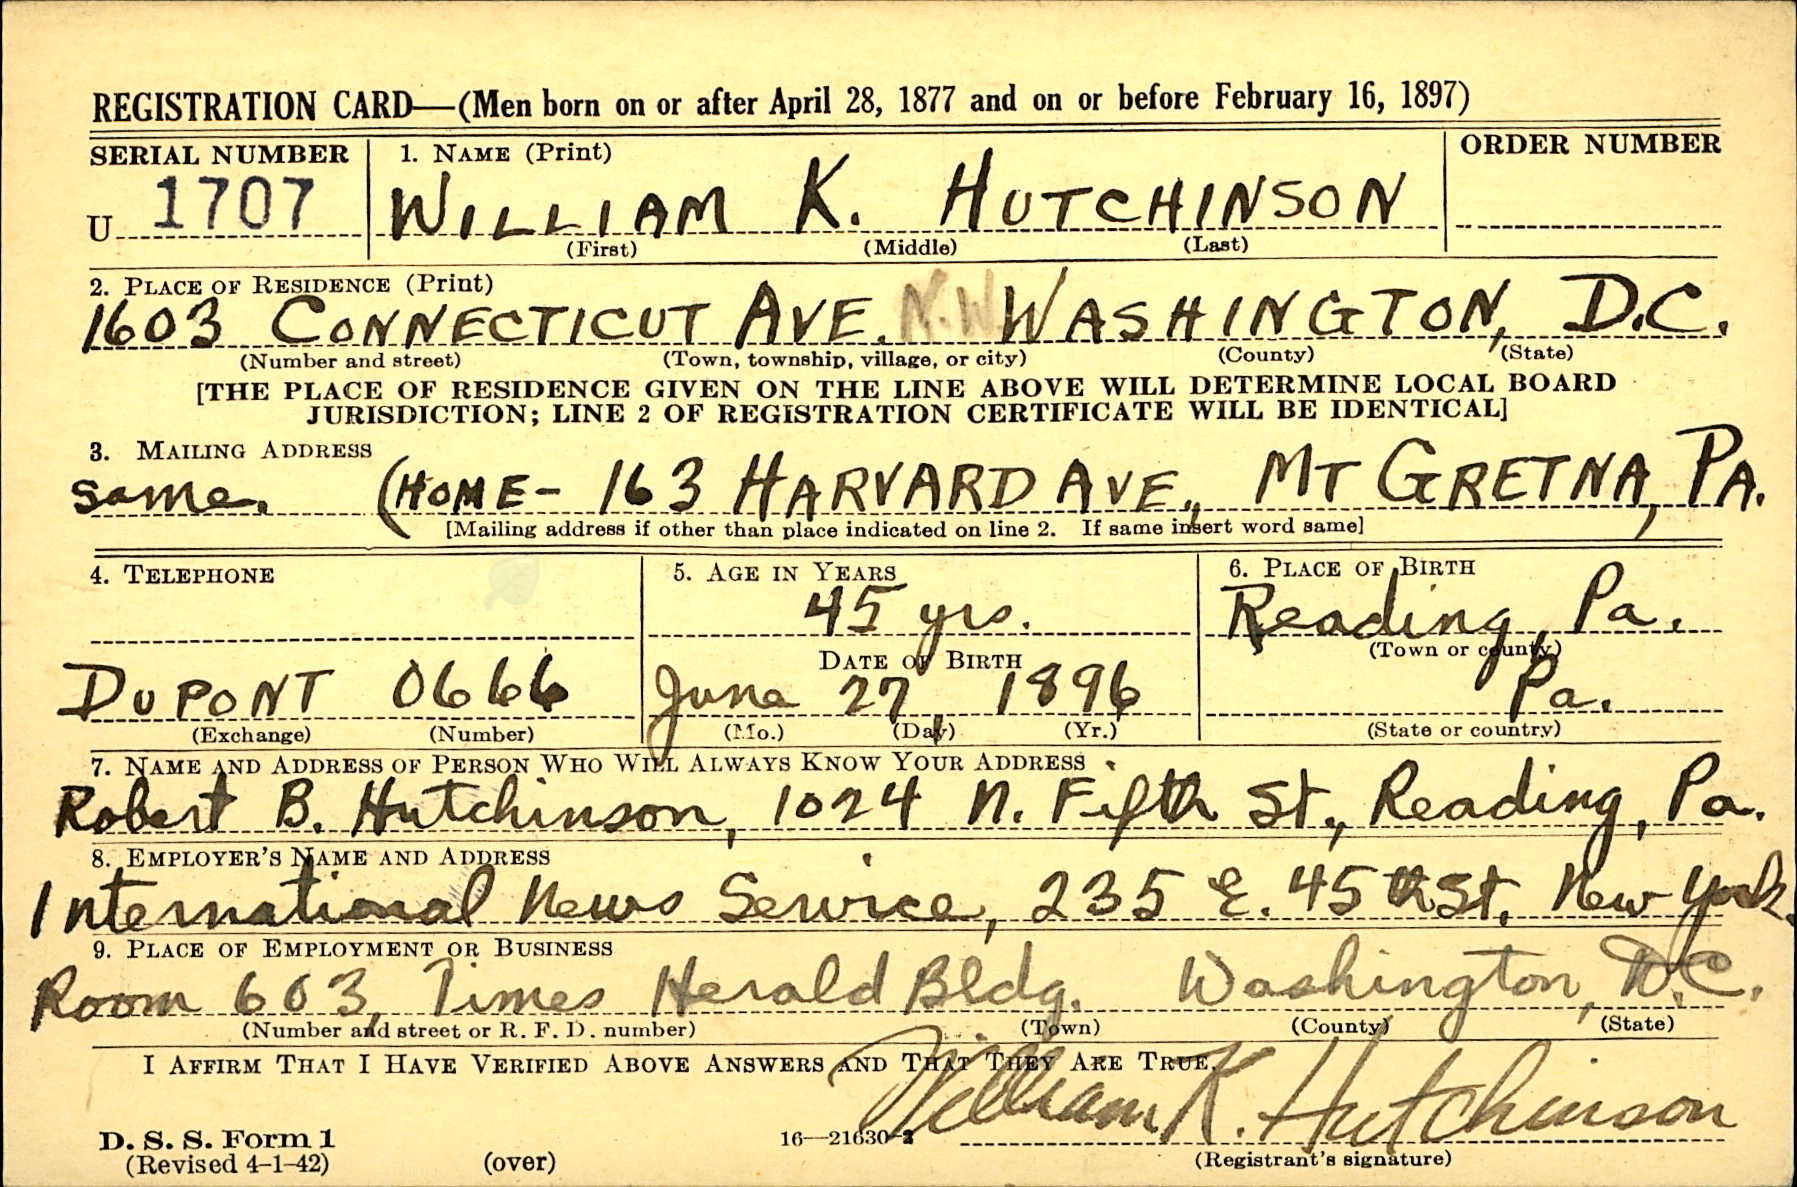 REGISTRATION CARD—(Men born on or after April 28, 1877 and on or before February 16, 1897)
SERIAL NUMBER 1. NAME (Print) ORDER NUMBER
U 1707 WILLIAM K. HUTCHINSON
(First) (Middle) (Last)
2. PLACE OF RESIDENCE (Print)
1603 CONNECTICUT AVE. N.W. WASHINGTON, D.C.
(Number and street) (Town, township, village, or city) (County) (State)
[THE PLACE OF RESIDENCE GIVEN ON THE LINE ABOVE WILL DETERMINE LOCAL BOARD
JURISDICTION; LINE 2 OF REGISTRATION CERTIFICATE WILL BE IDENTICAL]
3. MAILING ADDRESS
same. (HOME- 163 HARVARD AVE., MT GRETNA, PA.
[Mailing address if other than place indicated on line 2. If same insert word same]
4. TELEPHONE 5. AGE IN YEARS 6. PLACE OF BIRTH
45 yrs. Reading, Pa.
DATE OF BIRTH (Town or county)
DUPONT 0666 June 27, 1896 Pa.
(Exchange) (Number) (Mo.) (Day) (Yr.) (State or country)
7. NAME AND ADDRESS OF PERSON WHO WILL ALWAYS KNOW YOUR ADDRESS
Robert B. Hutchinson, 1024 N. Fifth St., Reading, Pa.
8. EMPLOYER'S NAME AND ADDRESS
International News Service, 235 E. 45th St. New York.
9. PLACE OF EMPLOYMENT OR BUSINESS
Room 603, Times Herald Bldg. Washington, D.C.
(Number and street or R. F. D. number) (Town) (County) (State)
I AFFIRM THAT I HAVE VERIFIED ABOVE ANSWERS AND THAT THEY ARE TRUE.
William K. Hutchinson
D. S. S. Form 1 16—21630-2
(Revised 4-1-42) (over) (Registrant's signature)